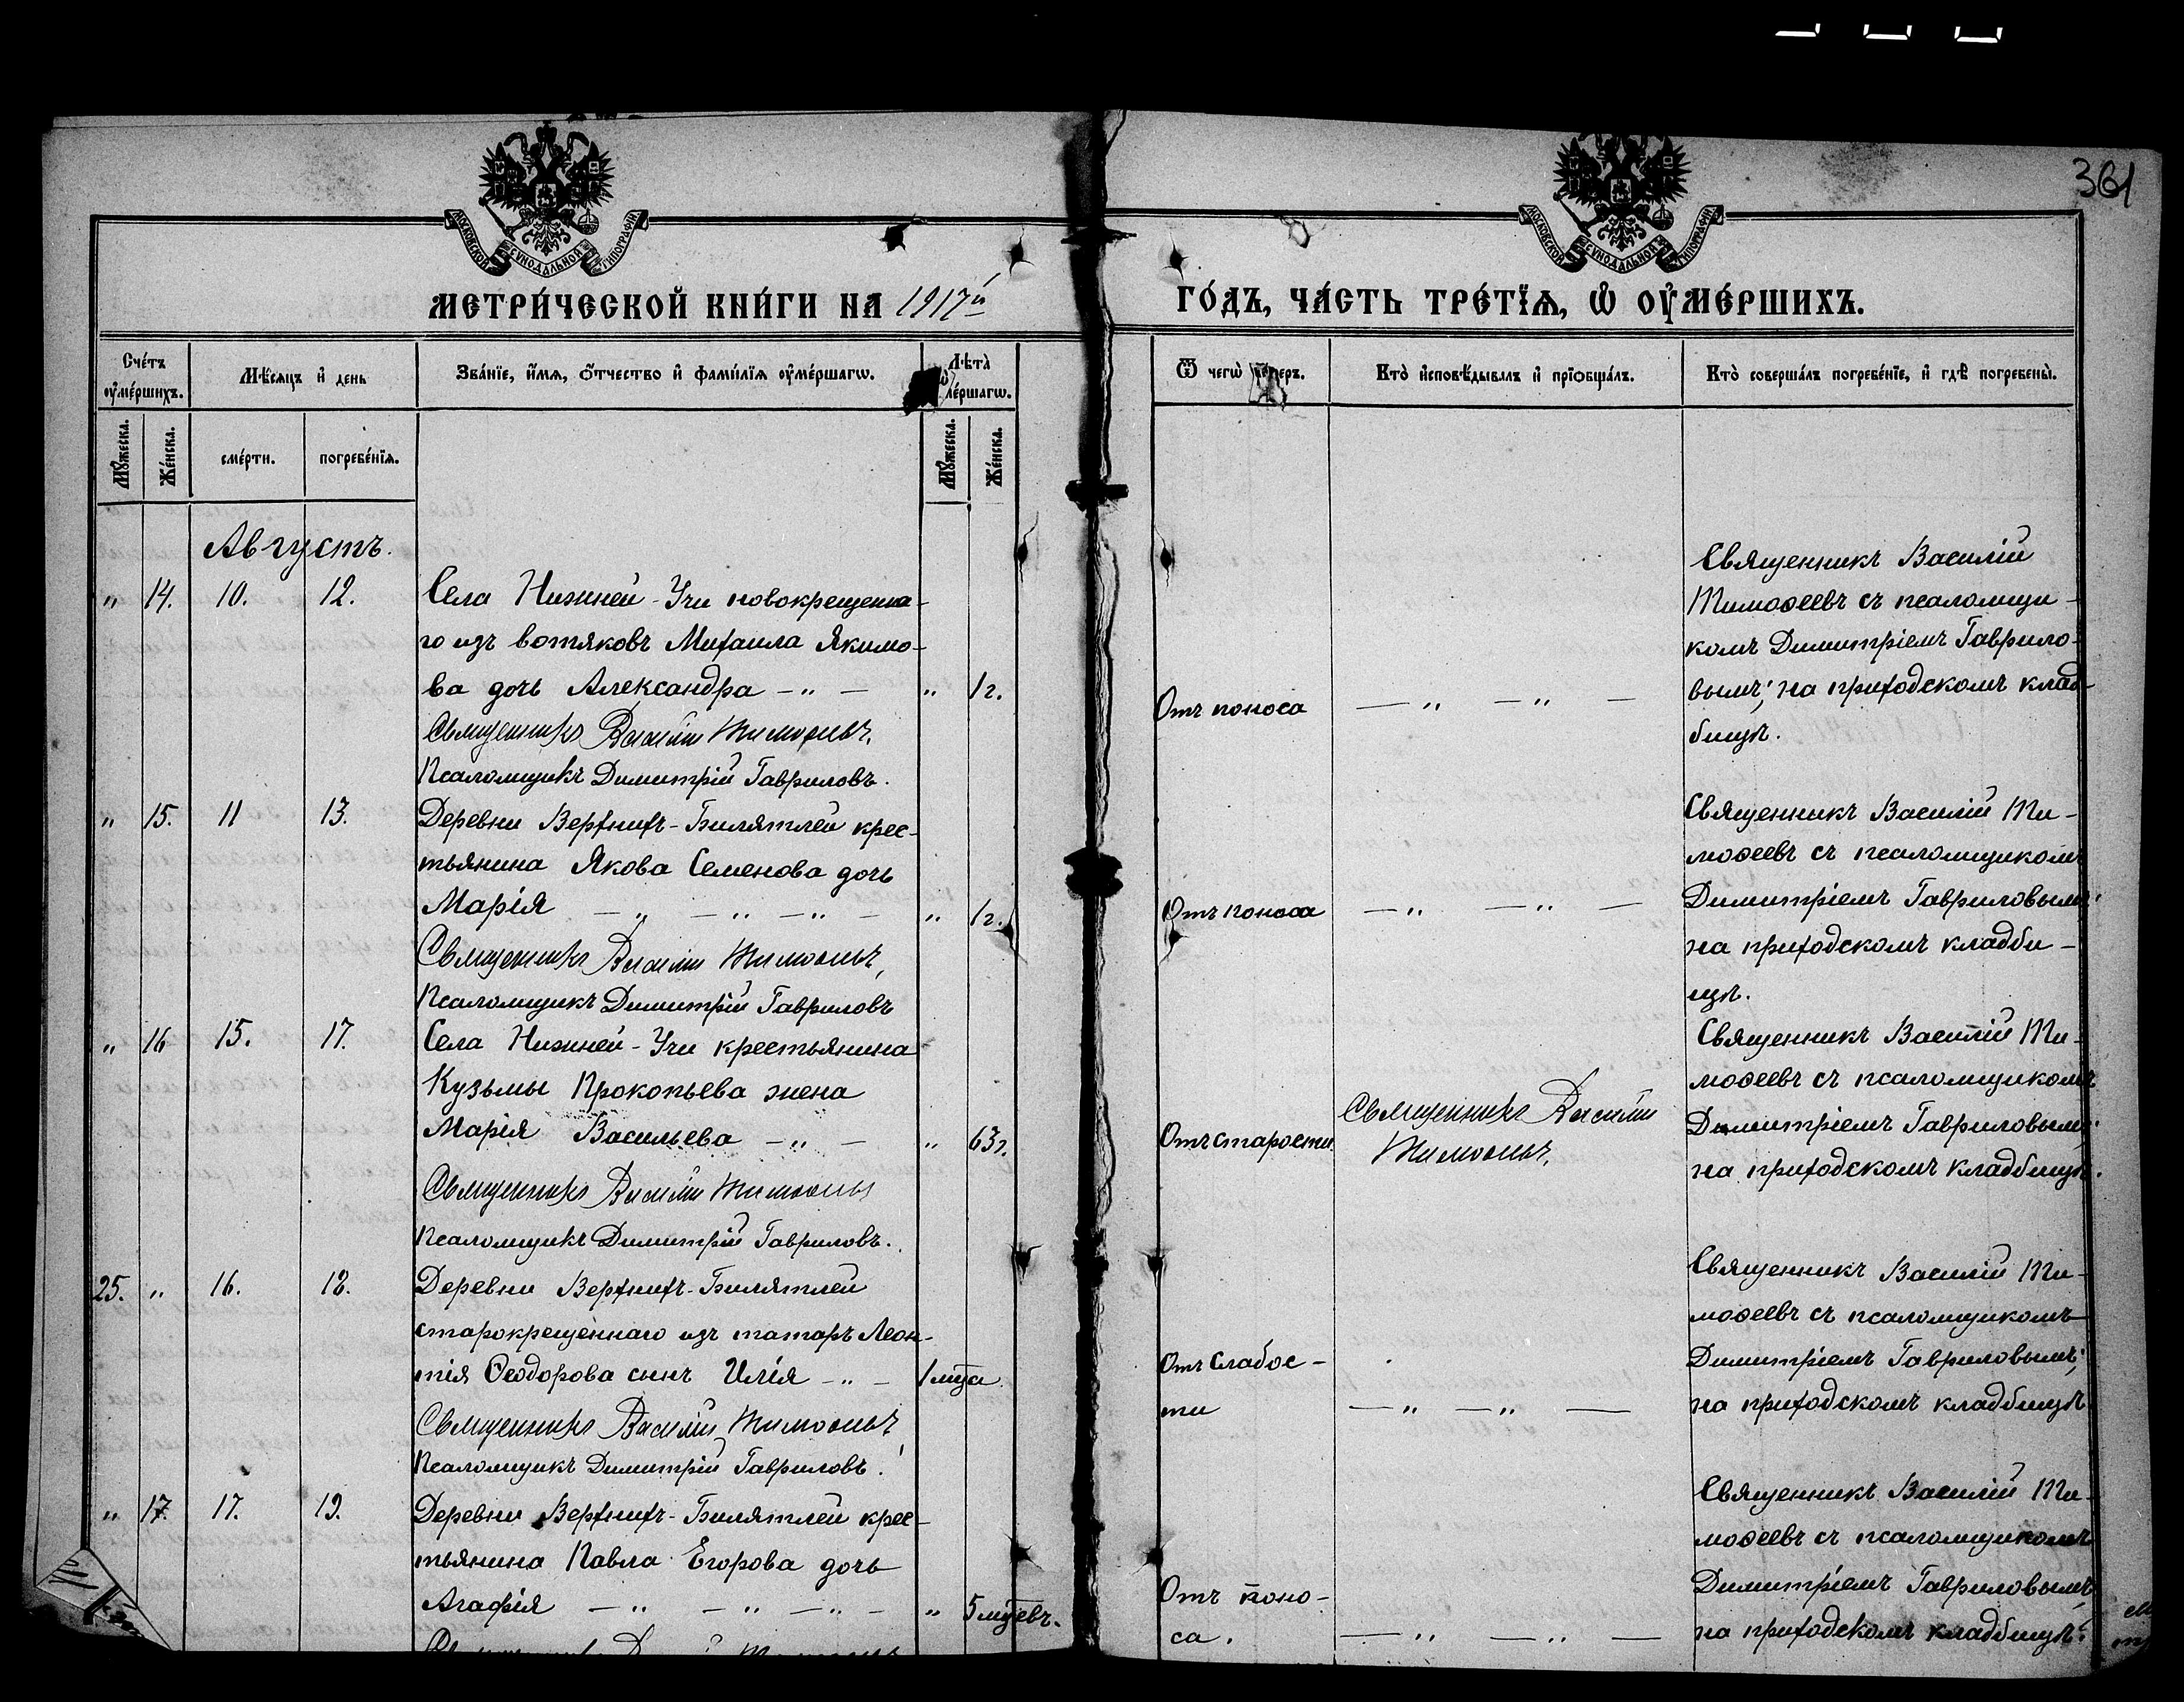 361
МОСКОВСКОЙ СУНОДАЛЬНОЙ ТИПОГРАФІИ
МОСКОВСКОЙ СУНОДАЛЬНОЙ ТИПОГРАФІИ
МЕТРИ́ЧЕСКОЙ КНИ́ГИ НА 1917й ГО́ДЪ, ЧА́СТЬ ТРЕ́ТІѦ, Ѡ҆ ОУ҆МЕ́РШИХЪ.
Сче́тъ оу҆ме́ршихъ.
Мѣ́сяцъ и҆ день
Зва́нїе, и҆́мя, о҆́тчество и҆ фами́лїя оу҆ме́ршагѡ.
Лѣ́та ме́ршагѡ.
Ѿ чегѡ̀ ме́ръ.
Кто̀ и҆сповѣ́дывалъ и҆ прїѻбща́лъ.
Кто̀ соверша́лъ погребе́нїе, и҆ гдѣ̀ погребены̀.
Мꙋ́жеска. Же́нска. сме́рти. погребе́нїя. Мꙋ́жеска. Же́нска.
Августъ.
" 14. 10. 12. Села Нижней-Учи новокрещенна-
го изъ вотяковъ Михаила Якимо-
ва дочь Александра - " - " 1 г.
Священникъ Василій Тимоѳеевъ.
Псаломщикъ Димитрій Гавриловъ.
Отъ поноса — " — " —
Священникъ Василій
Тимоѳеевъ съ псаломщи-
комъ Димитріемъ Гаврило-
вымъ; на приходскомъ клад-
бищѣ.
" 15. 11 13. Деревни Верхнихъ-Билятлей крес-
тьянина Якова Семенова дочь
Марія — " — " — " — " 1 г.
Священникъ Василій Тимоѳеевъ,
Псаломщикъ Димитрій Гавриловъ
Отъ поноса — " — " —
Священникъ Василій Ти-
моѳеевъ съ псаломщикомъ
Димитріемъ Гавриловымъ;
на приходскомъ кладби-
щѣ.
" 16 15. 17. Села Нижней-Учи крестьянина
Кузьмы Прокопьева жена
Марія Васильева - " - " 63 г.
Священникъ Василій Тимоѳеевъ
Псаломщикъ Димитрій Гавриловъ.
Отъ старости.
Священникъ Василій
Тимоѳеевъ.
Священникъ Василій Ти-
моѳеевъ съ псаломщикомъ
Димитріемъ Гавриловымъ;
на приходскомъ кладбищѣ.
25. " 16. 18. Деревни Верхнихъ-Билятлей
старокрещеннаго изъ татаръ Леон-
тія Ѳеодорова сынъ Илія - " - 1 мца
Священникъ Василій Тимоѳеевъ,
Псаломщикъ Димитрій Гавриловъ.
Отъ слабос-
ти — " — " —
Священникъ Василій Ти-
моѳеевъ съ псаломщикомъ
Димитріемъ Гавриловымъ;
на приходскомъ кладбищѣ
" 17. 17. 19. Деревни Верхнихъ-Билятлей крес-
тьянина Павла Егорова дочь
Агафія — " — " — " — " 5 мцевъ.
Отъ поно-
са. — " — " —
Священникъ Василій Ти-
моѳеевъ съ псаломщикомъ
Димитріемъ Гавриловымъ,
на приходскомъ кладбищѣ.